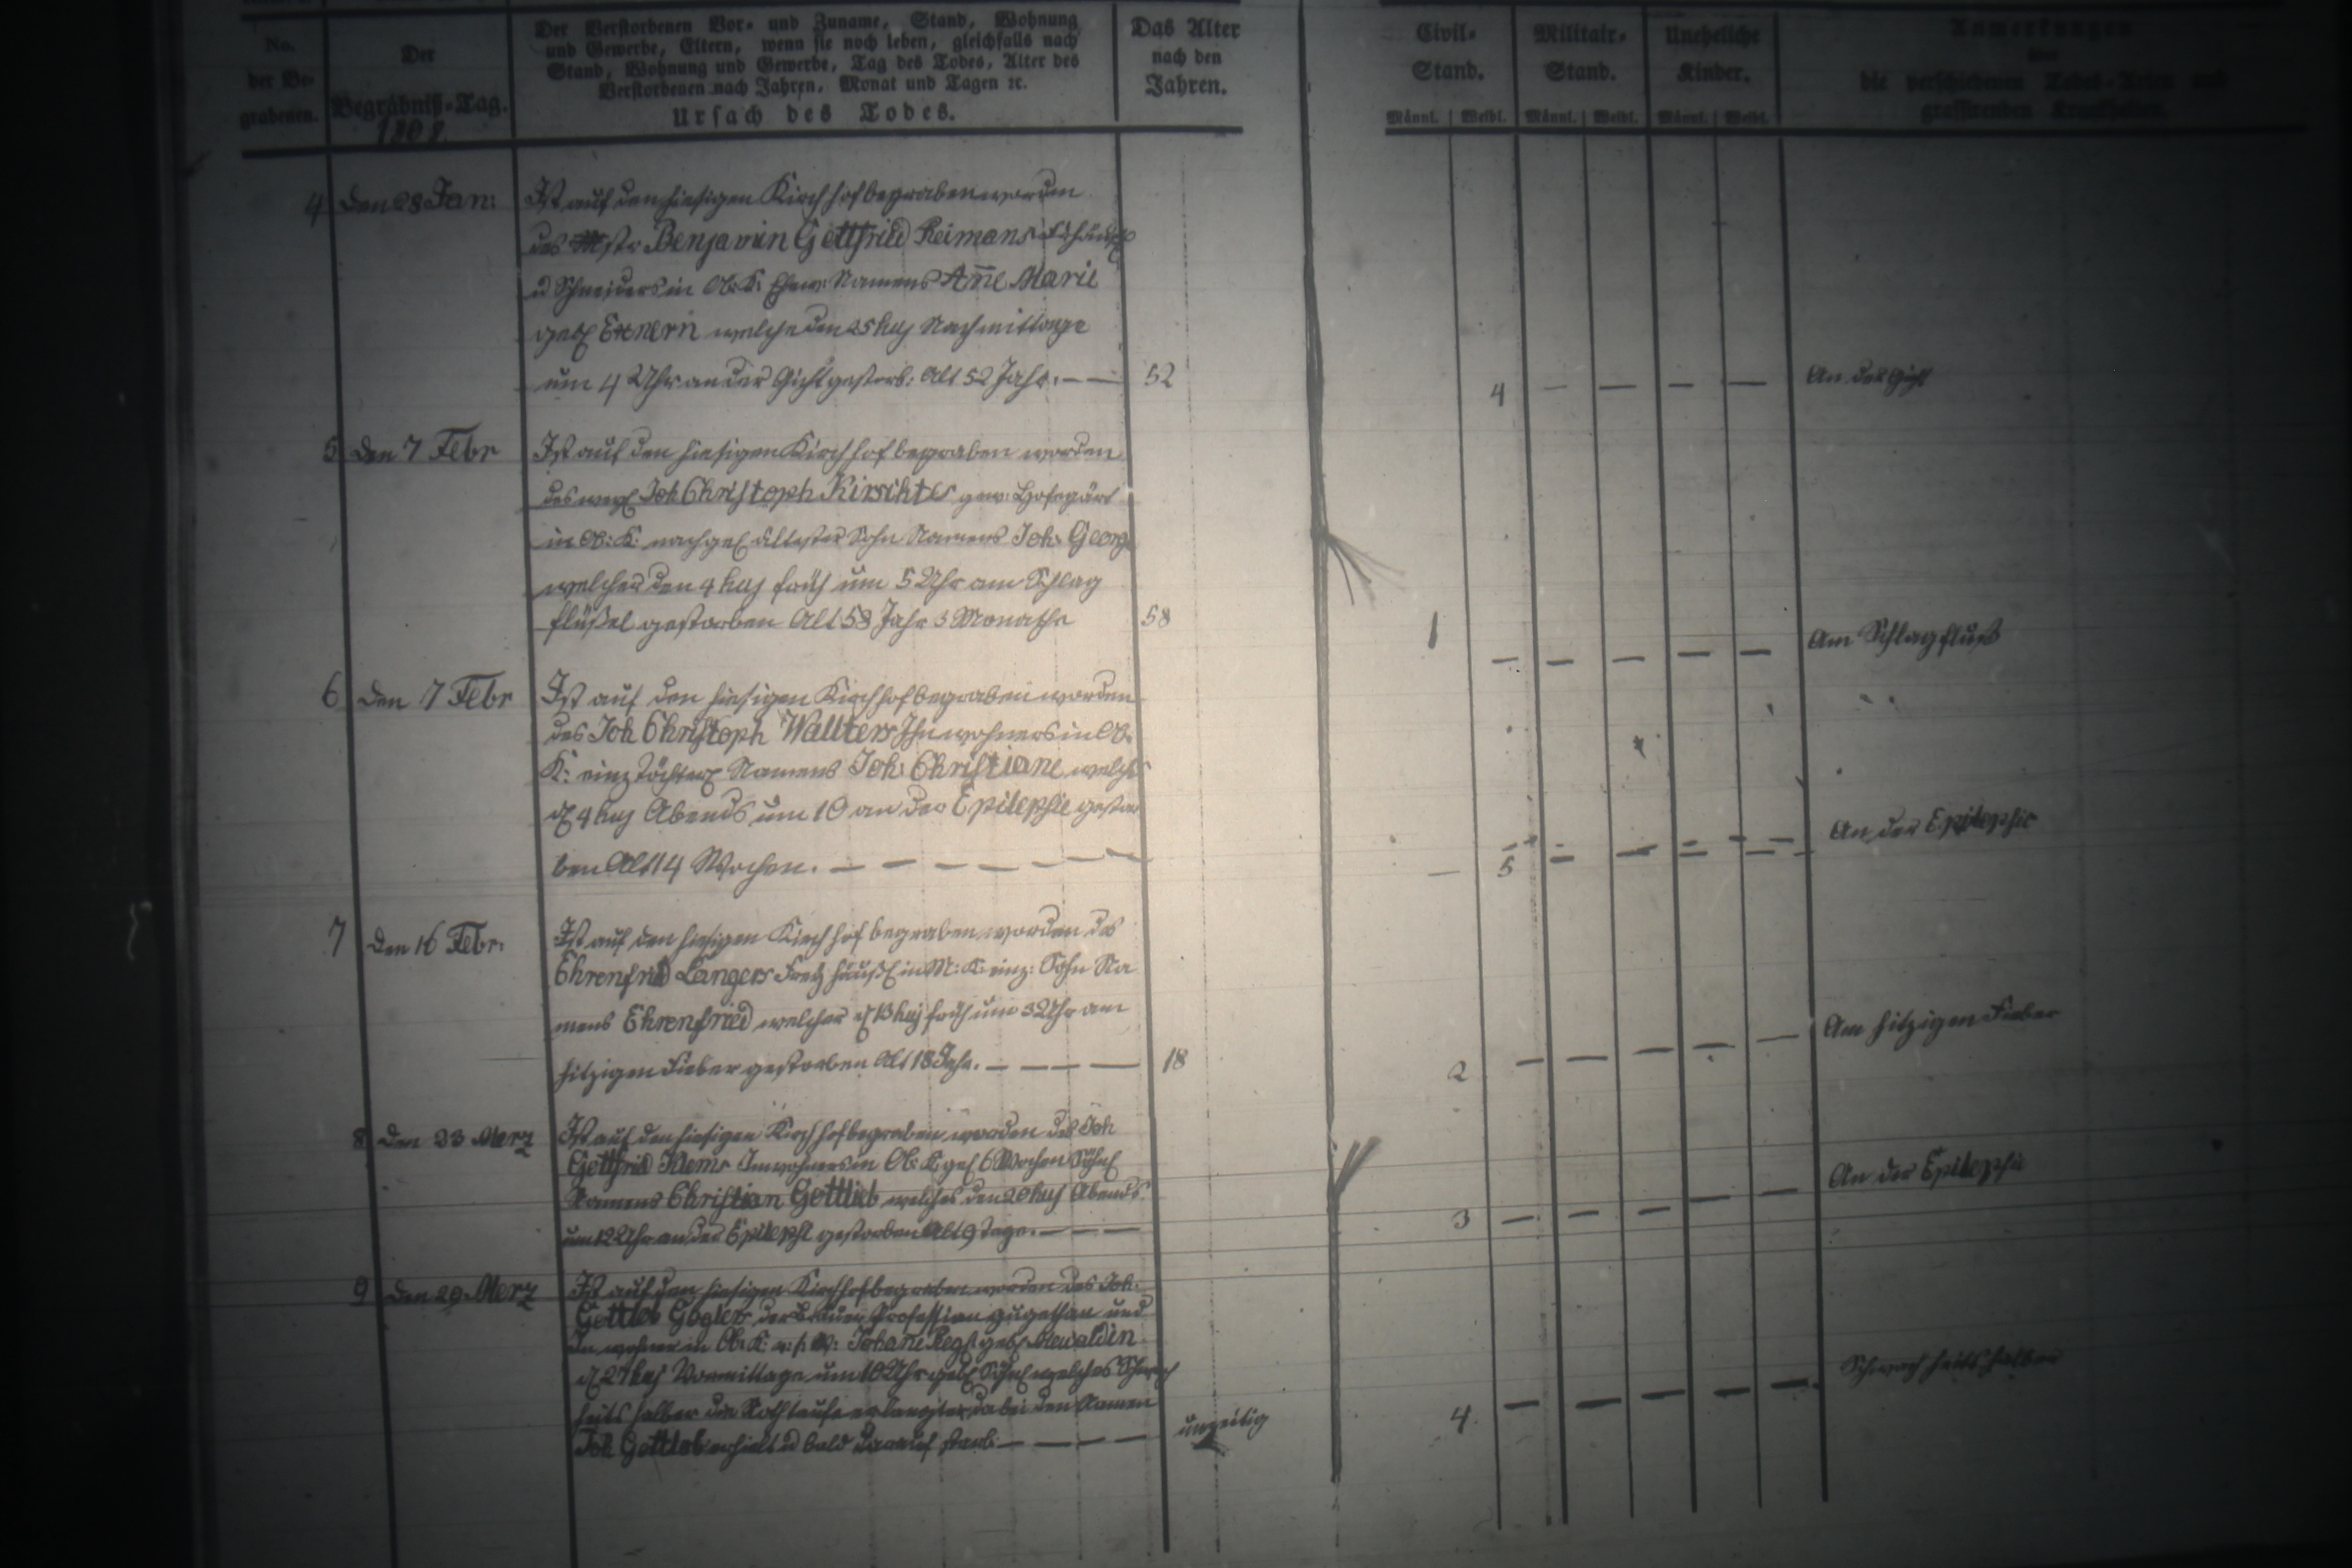 No. der Begrabenen.
Der Begräbniß-Tag.
1808.
Der Verstorbenen Vor- und Zuname, Stand, Wohnung
und Gewerbe, Eltern, wenn sie noch leben, gleichfalls nach
Stand, Wohnung und Gewerbe, Tag des Todes, Alter des
Verstorbenen nach Jahren, Monat und Tagen ꝛc.
Ursach des Todes.
Das Alter
nach den
Jahren.
Civil-
Stand.
Militair-
Stand.
Uneheliche
Kinder.
Männl. Weibl. Männl. Weibl. Männl. Weibl.
Anmerkungen
über
die verschiedenen Todes-Arten und
grassirenden Krankheiten.
4 den 28 Jan: Ist auf den hiesigen Kirchhof begraben worden
des Mstr Benjamin Gottfried Reimans
u Schneiders in Ob: K: Ehew: Namens Añe Marie
geb Exnern welche den 25 huj Nachmittage
um 4 Uhr an der Gicht gestorb: Alt 52 Jahr. — — 52 4 — — — — An der Gicht
5 den 7 Febr Ist auf den hiesigen Kirchhof begraben worden
des Joh Christoph Kirschtes gew: Hofegärt
in Ob: K: nachgel ältester Sohn Namens Joh: George
welcher den 4 huj früh um 5 Uhr am Schlag
flüßel gestorben Alt 58 Jahr 3 Monathe 58 1 — — — — — Am Schlagfluß
6 den 7 Febr Ist auf den hiesigen Kirchhof begraben worden
des Joh Christoph Wallters Inwohners in Ob:
K: einz Töchterl Namens Joh: Christiane welche
d 4 huj Abends um 10 an der Epilepsie gestor
ben Alt 14 Wochen. — — — — — — — 5 — — — — An der Epilepsie
7 den 16 Febr: Ist auf den hiesigen Kirchhof begraben worden des
Ehrenfried Langers Freyhäusl in M: K: einz: Sohn Na
mens Ehrenfried welcher d 13 huj früh um 3 Uhr am
hitzigen Fieber gestorben Alt 18 Jahr. — — — — 18 2 — — — — — Am hitzigen Fieber
8 den 23 Merz Ist auf den hiesigen Kirchhof begraben worden des Joh
Gottfried Klems Inwohners in Ob: K: 6 Wochen Söhnl
Namens Christian Gottlieb welches den 20 huj Abends
um 12 Uhr an der Epileps gestorben Alt 9 Tage. — — — 3 — — — — — An der Epilepsie
9 den 29 Merz Ist auf den hiesigen Kirchhof begraben worden des Joh:
Gottlieb Goglers der Profession zugethan und
Inwohner in Ob: K: Johane geb
d 27 huj Vormittage um 10 Uhr geb Söhnl welches Schwach
heits halber die Nothtaufe erlangte, dabei den Namen
Joh Gottlieb erhielt u bald darauf starb. — — — — unzeitig 4 — — — — — Schwachheits halber